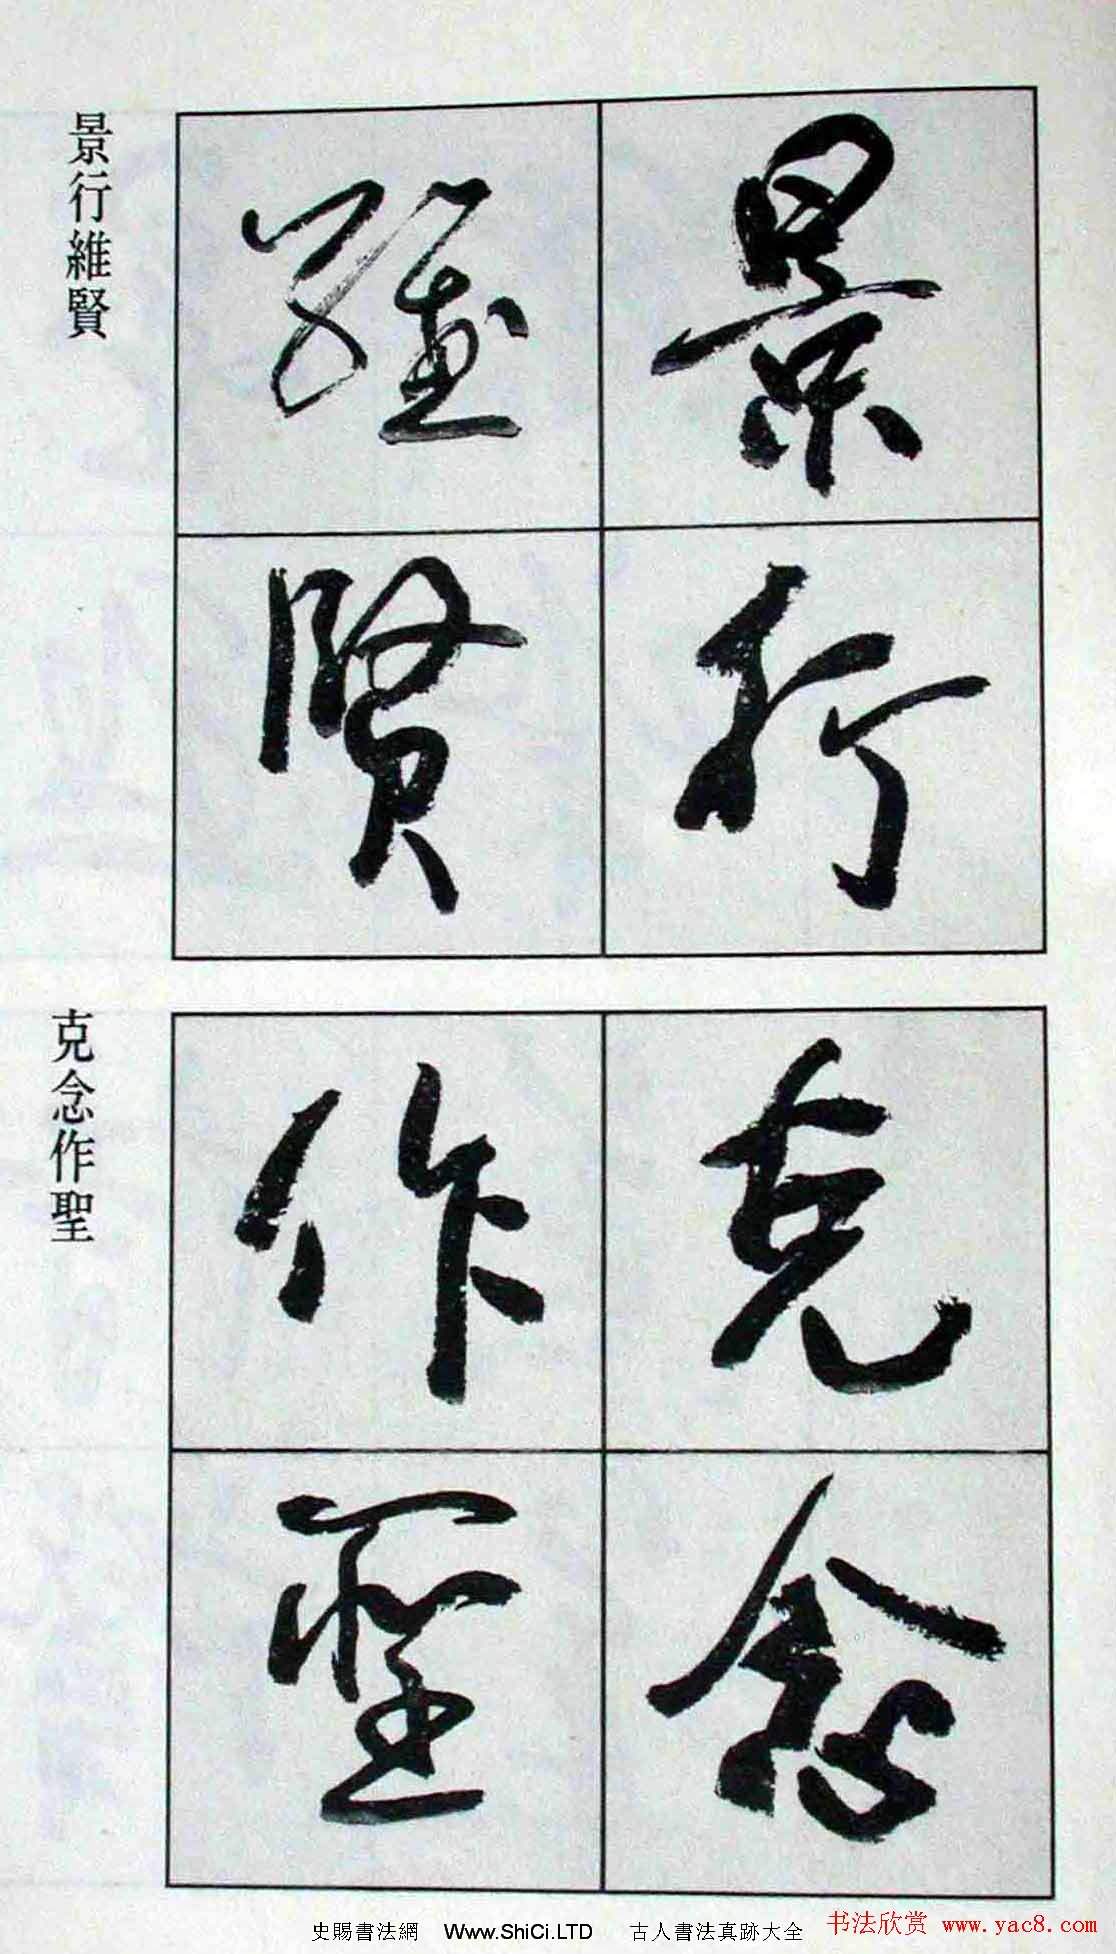 景行
維賢
景行維賢
克念
作聖
克念作聖
史賜書法網 Www.ShiCi.LTD 古人書法真跡大全
书法欣赏 www.yac8.com